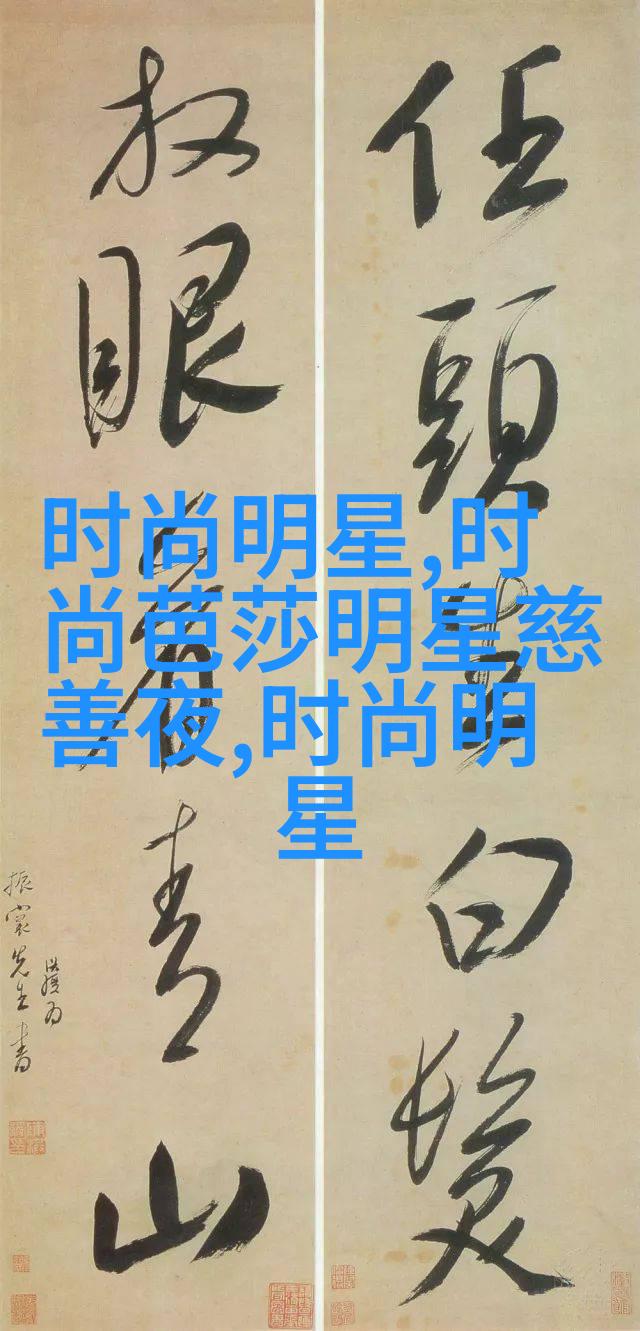 时尚明星,时
尚芭莎明星慈
善夜,时尚明
星
任頭生白髮
放眼看青山
振裳先生書